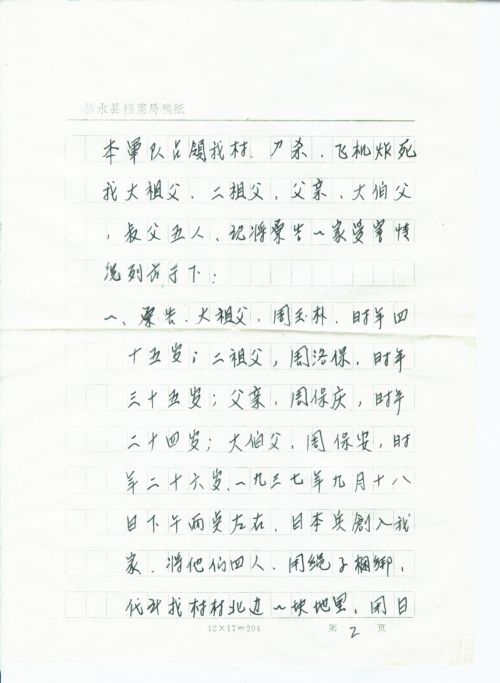 徐水县档案局稿纸
本軍队占領我村.刀杀、飞机炸死
我大祖父、二祖父、父亲、大伯父
、叔父五人、现将原告一家受害情
况列於下:
一、原告、大祖父、周玉朴、时年四
十五岁;二祖父,周洛保、时年
三十五岁;父亲、周保庆,时年
二十四岁;大伯父、周保安,时
年二十六岁、一九三七年九月十八
日下午两点左右、日本兵创入我
家.将他们四人、用绳子捆绑,
代到我村村北边一块地里,用日
12×17=204 第 2 页